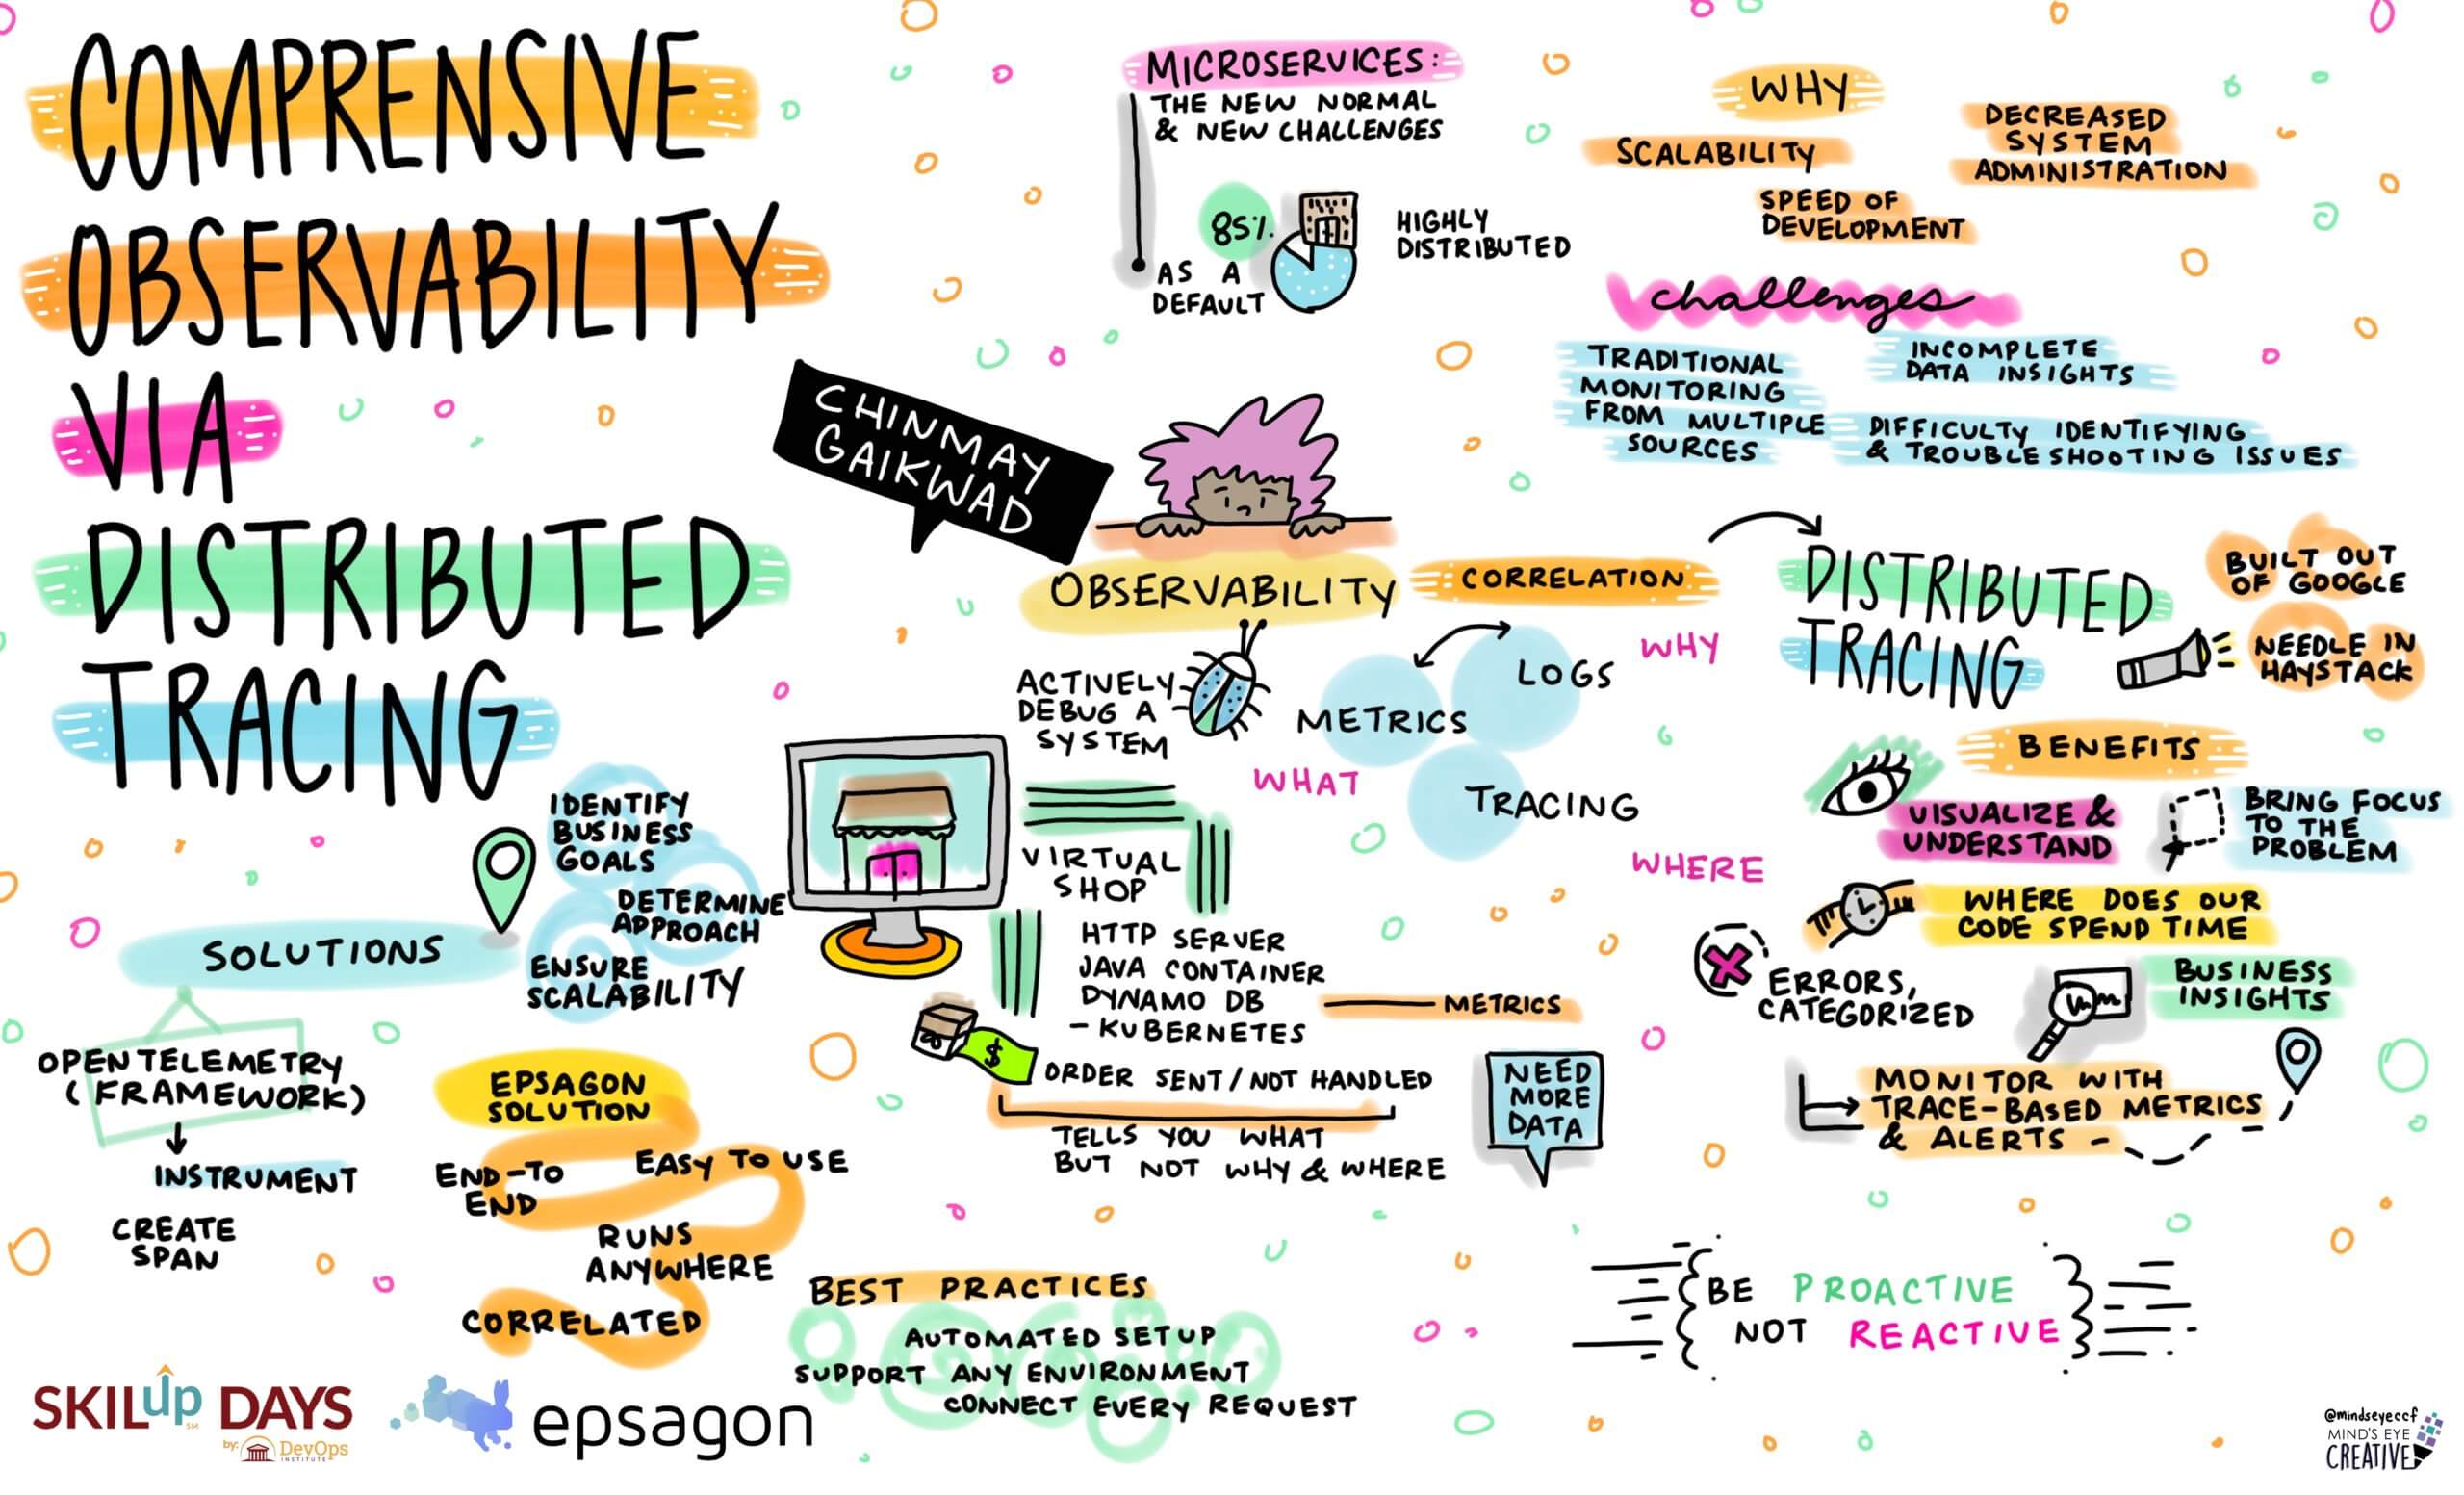 COMPRENSIVE
OBSERVABILITY
VIA
DISTRIBUTED
TRACING
CHINMAY
GAIKWAD
MICROSERVICES:
THE NEW NORMAL
& NEW CHALLENGES
85%
AS A
DEFAULT
HIGHLY
DISTRIBUTED
WHY
SCALABILITY
DECREASED
SYSTEM
ADMINISTRATION
SPEED OF
DEVELOPMENT
challenges
TRADITIONAL
MONITORING
FROM MULTIPLE
SOURCES
INCOMPLETE
DATA INSIGHTS
DIFFICULTY IDENTIFYING
& TROUBLESHOOTING ISSUES
OBSERVABILITY
CORRELATION
ACTIVELY
DEBUG A
SYSTEM
METRICS
LOGS
TRACING
WHY
WHAT
WHERE
VIRTUAL
SHOP
HTTP SERVER
JAVA CONTAINER
DYNAMO DB
- KUBERNETES
METRICS
$
ORDER SENT/NOT HANDLED
TELLS YOU WHAT
BUT NOT WHY & WHERE
NEED
MORE
DATA
DISTRIBUTED
TRACING
BUILT OUT
OF GOOGLE
NEEDLE IN
HAYSTACK
BENEFITS
VISUALIZE &
UNDERSTAND
BRING FOCUS
TO THE
PROBLEM
WHERE DOES OUR
CODE SPEND TIME
ERRORS,
CATEGORIZED
BUSINESS
INSIGHTS
MONITOR WITH
TRACE-BASED METRICS
& ALERTS -
SOLUTIONS
IDENTIFY
BUSINESS
GOALS
DETERMINE
APPROACH
ENSURE
SCALABILITY
OPEN TELEMETRY
(FRAMEWORK)
INSTRUMENT
CREATE
SPAN
EPSAGON
SOLUTION
END-TO
END
EASY TO USE
RUNS
ANYWHERE
CORRELATED
BEST PRACTICES
AUTOMATED SETUP
SUPPORT ANY ENVIRONMENT
CONNECT EVERY REQUEST
BE PROACTIVE
NOT REACTIVE
SKILup DAYS
SM
by: DevOps
INSTITUTE
epsagon
@mindseyeccf
MIND'S EYE
CREATIVE